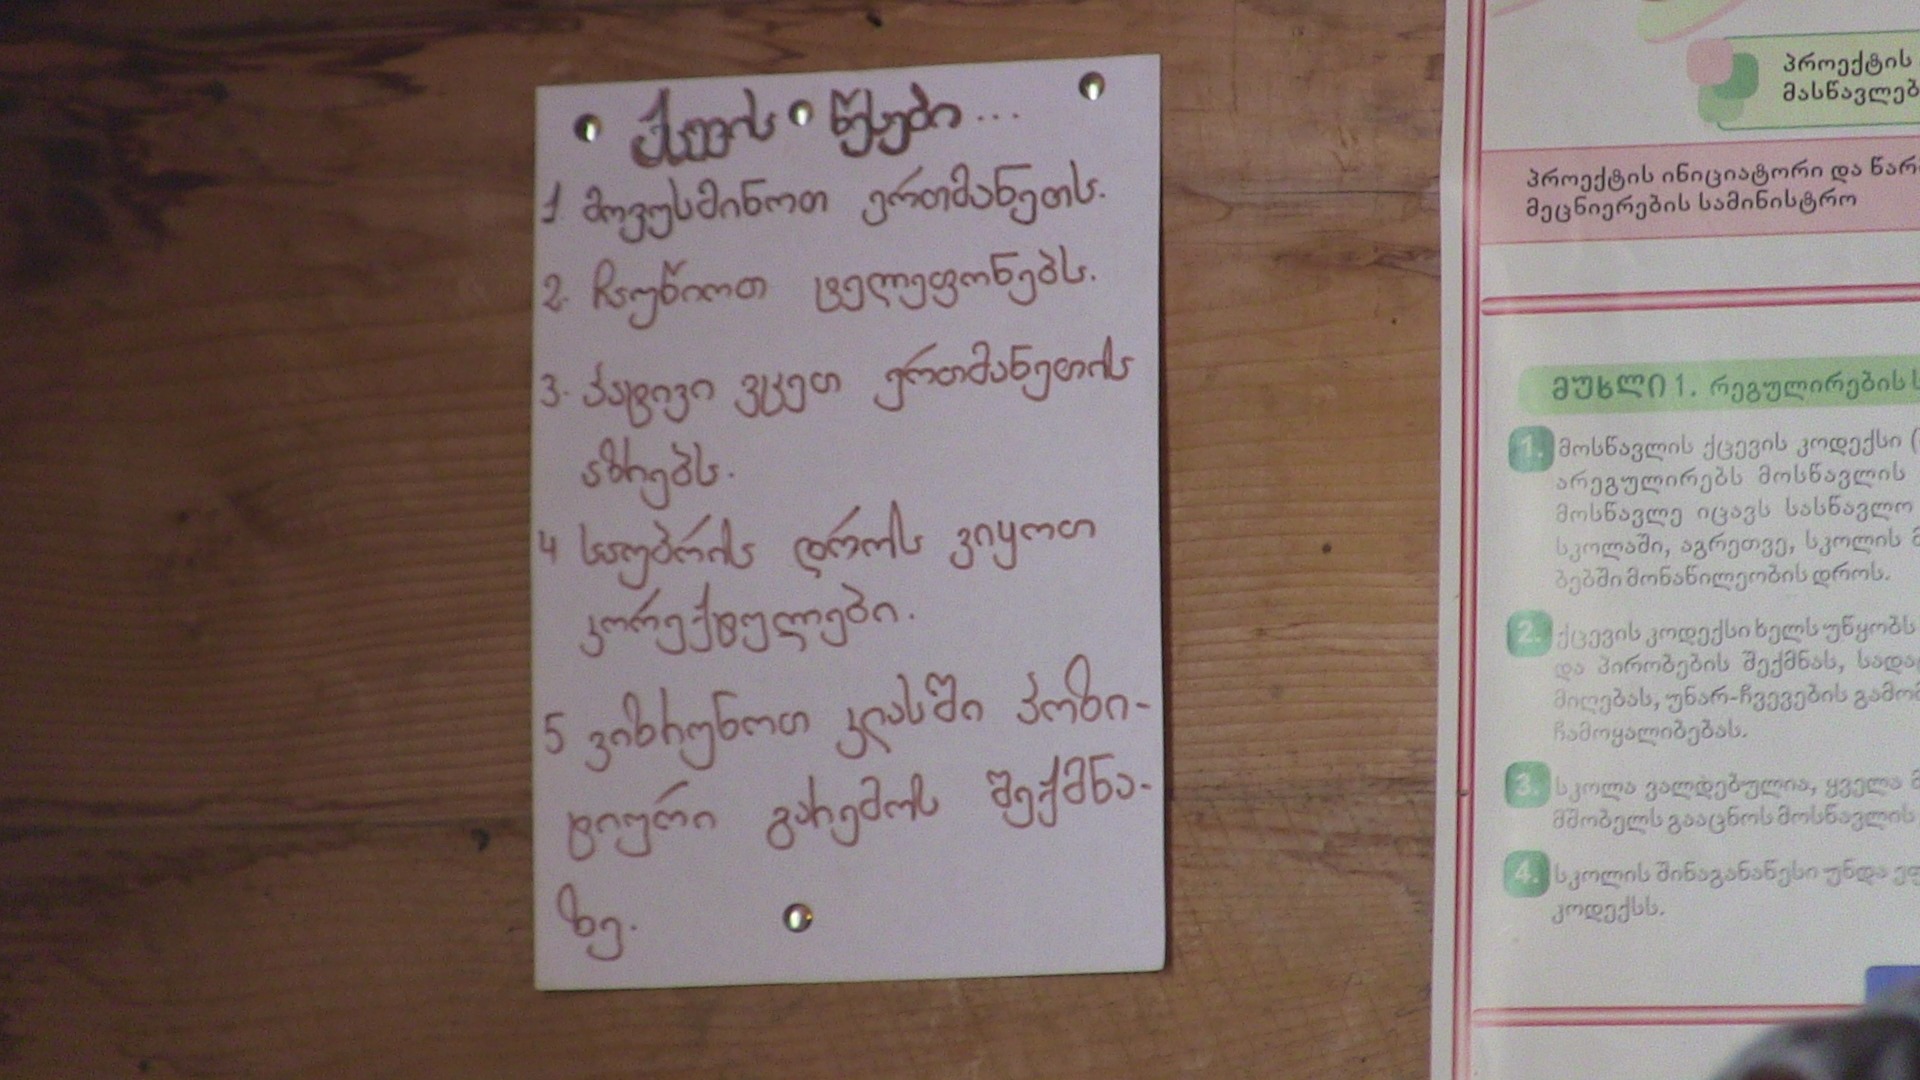 ქცევის წესები...
1 მოვუსმინოთ ერთმანეთს.
2. ჩაუწიოთ ტელეფონებს.
3. პატივი ვცეთ ერთმანეთის
აზრებს.
4 საუბრის დროს ვიყოთ
კორექტულები.
5 ვიზრუნოთ კლასში პოზი-
ტიური გარემოს შექმნა-
ზე.
პროექტის
მასწავლებ
პროექტის ინიციატორი და წარ
მეცნიერების სამინისტრო
მუხლი 1. რეგულირების ს
1. მოსწავლის ქცევის კოდექსი (
არეგულირებს მოსწავლის
მოსწავლე იცავს სასწავლო
სკოლაში, აგრეთვე, სკოლის
ბებში მონაწილეობის დროს.
2. ქცევის კოდექსი ხელს უწყობს
და პირობების შექმნას, სადა
მიღებას, უნარ-ჩვევების გამო
ჩამოყალიბებას.
3. სკოლა ვალდებულია, ყველა
მშობელს გააცნოს მოსწავლის
4. სკოლის შინაგანაწესი უნდა
კოდექსს.